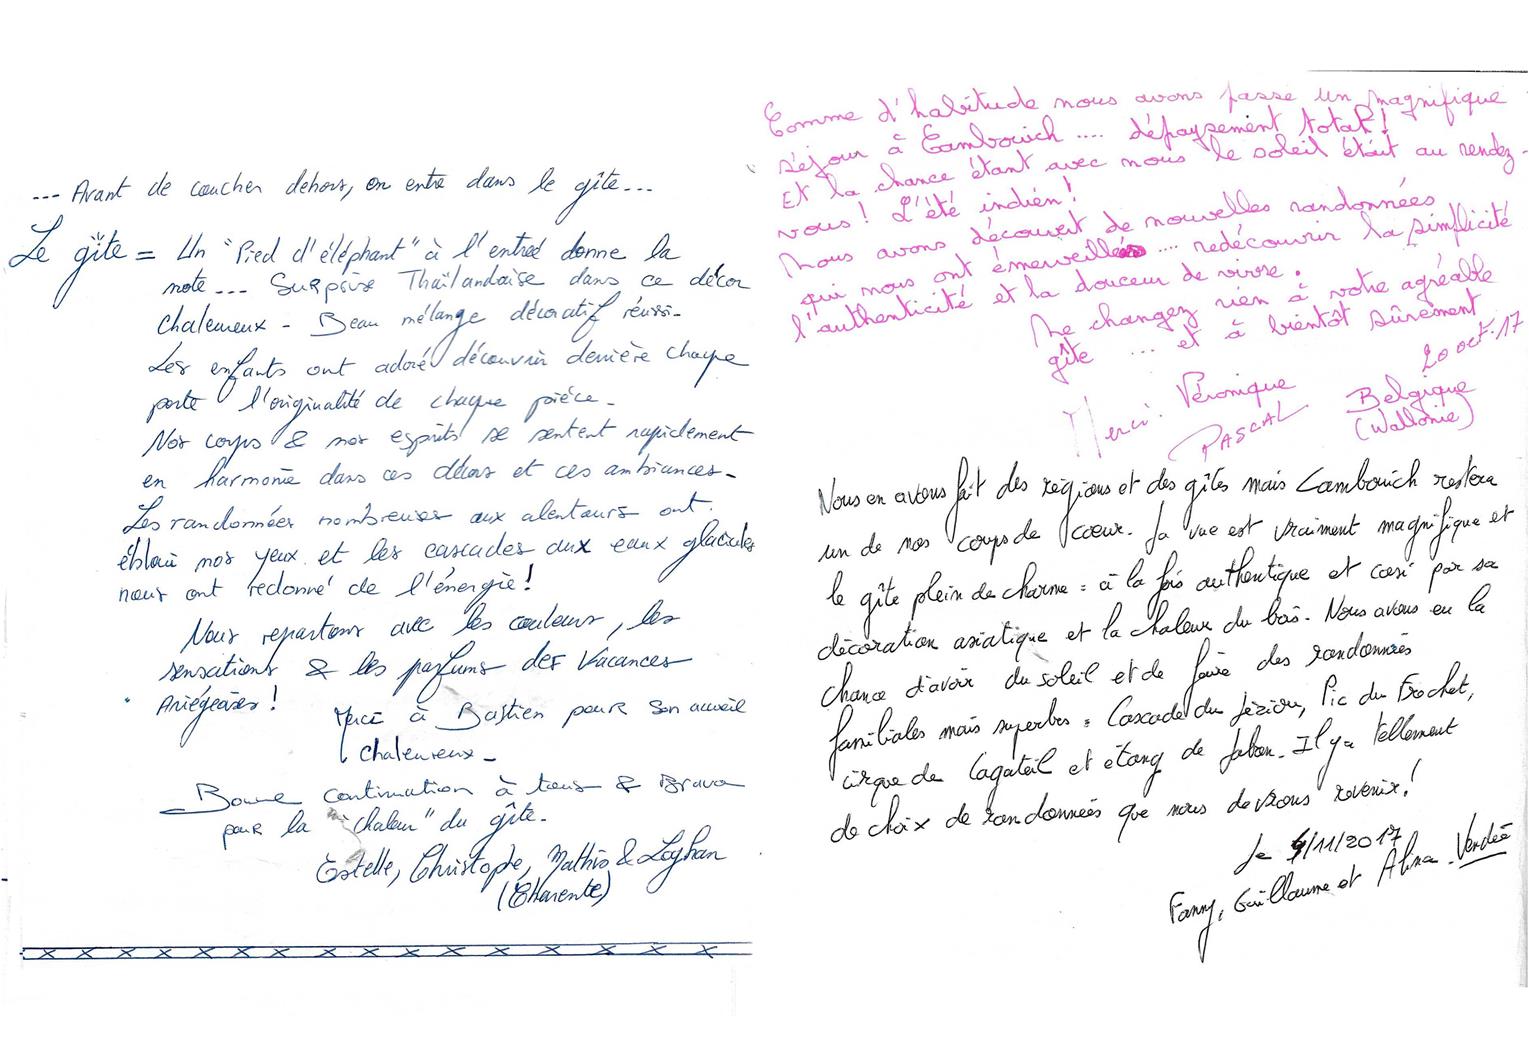 ... Avant de coucher dehors, on entre dans le gîte...
Le gîte = Un "Pied d'éléphant" à l'entrée donne la
note... Surprise Thaïlandaise dans ce décor
chaleureux - Beau mélange décoratif réussi -
Les enfants ont adoré découvrir derrière chaque
porte l'originalité de chaque pièce -
Nos corps & nos esprits se sentent rapidement
en harmonie dans ces décors et ces ambiances -
Les randonnées nombreuses aux alentours ont
éblouï nos yeux et les cascades aux eaux glaciales
nous ont redonné de l'énergie !
Nous repartons avec les couleurs, les
sensations & les parfums des Vacances
Ariégeoises !
Merci à Bastien pour son accueil
chaleureux -
Bonne continuation à tous & Bravo
pour la "chaleur" du gîte -
Estelle, Christophe, & Loghan
(Charente)
x x x x x x x x x x x x x x x x x
Comme d'habitude nous avons passé un magnifique
séjour à Cambouich .... dépaysement total !
Et la chance étant avec nous le soleil était au rendez-
vous ! L'été indien !
Nous avons découvert de nouvelles randonnées
qui nous ont émerveillés .... redécouvrir la simplicité
l'authenticité et la douceur de vivre.
Ne changez rien à votre agréable
gîte ... et à bientôt sûrement
20 oct. 17
Merci. Véronique Belgique
PASCAL (Wallonie)
Nous en avons fait des régions et des gîtes mais Cambouich restera
un de nos coups de cœur. La vue est vraiment magnifique et
le gîte plein de charme : à la fois authentique et cosi par sa
décoration asiatique et la chaleur du bois. Nous avons eu la
chance d'avoir du soleil et de faire des randonnées
familiales mais superbes : Cascade du Pic du
cirque de Cagateil et étang de . Il y a tellement
de choix de randonnées que nous devrons revenir !
Le /11/2017
Fanny, Guillaume et . Vendée